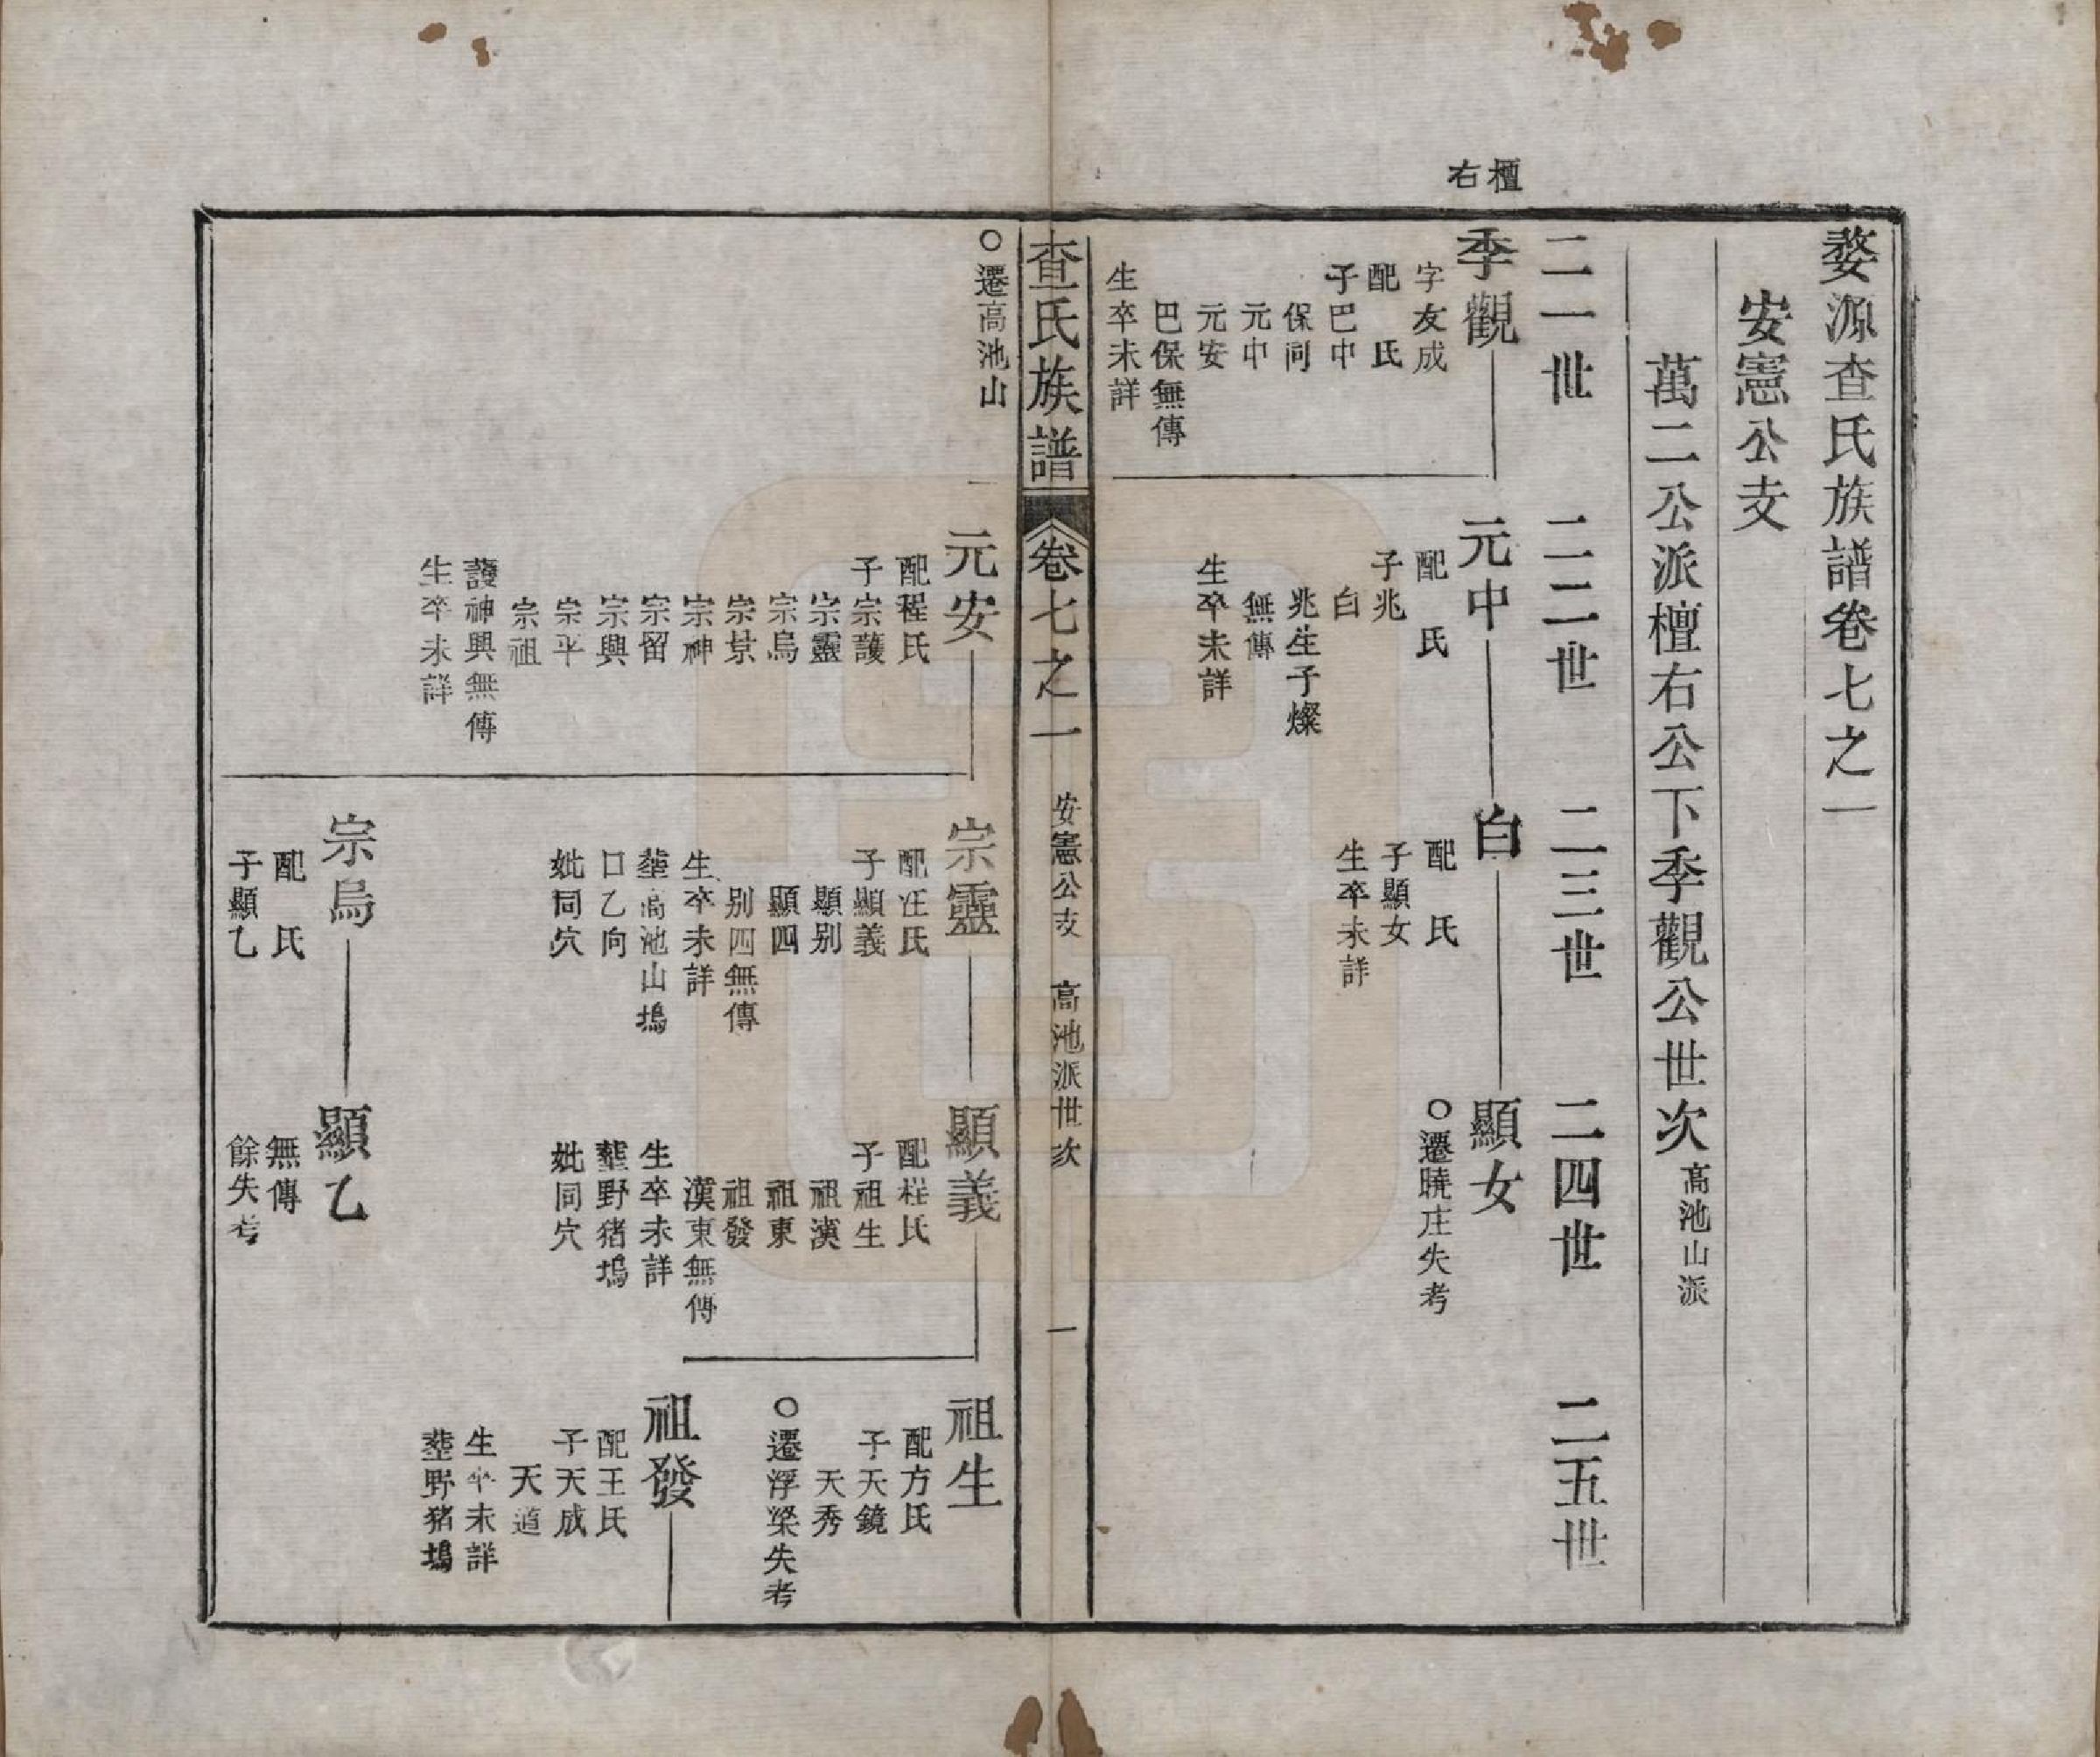 婺源查氏族譜卷七之一
安憲公支
萬二公派檀右公下季觀公世次高池山派
二一世
二二世
二三世
二四世
二五世
檀右
季觀
字友成
配　氏
子巴中
保同
元中
元安
巴保無傳
生卒未詳
元中
配　氏
子兆
白
兆生子燦
無傳
生卒未詳
白
配　氏
子顯女
生卒未詳
顯女
○遷曉庄失考
查氏族譜　卷七之一　安憲公支　高池派世次　一
○遷高池山
元安
配程氏
子宗護
宗靈
宗烏
宗景
宗神
宗留
宗興
宗平
宗祖
護神興無傳
生卒未詳
宗靈
配汪氏
子顯義
顯別
顯四
別四無傳
生卒未詳
塟高池山塢
口乙向
妣同穴
顯義
配程氏
子祖生
祖漢
祖東
祖發
漢東無傳
生卒未詳
塟野猪塢
妣同穴
祖生
配方氏
子天鏡
天秀
○遷浮梁失考
祖發
配王氏
子天成
天道
生卒未詳
塟野猪塢
宗烏
配　氏
子顯乙
顯乙
無傳
餘失考